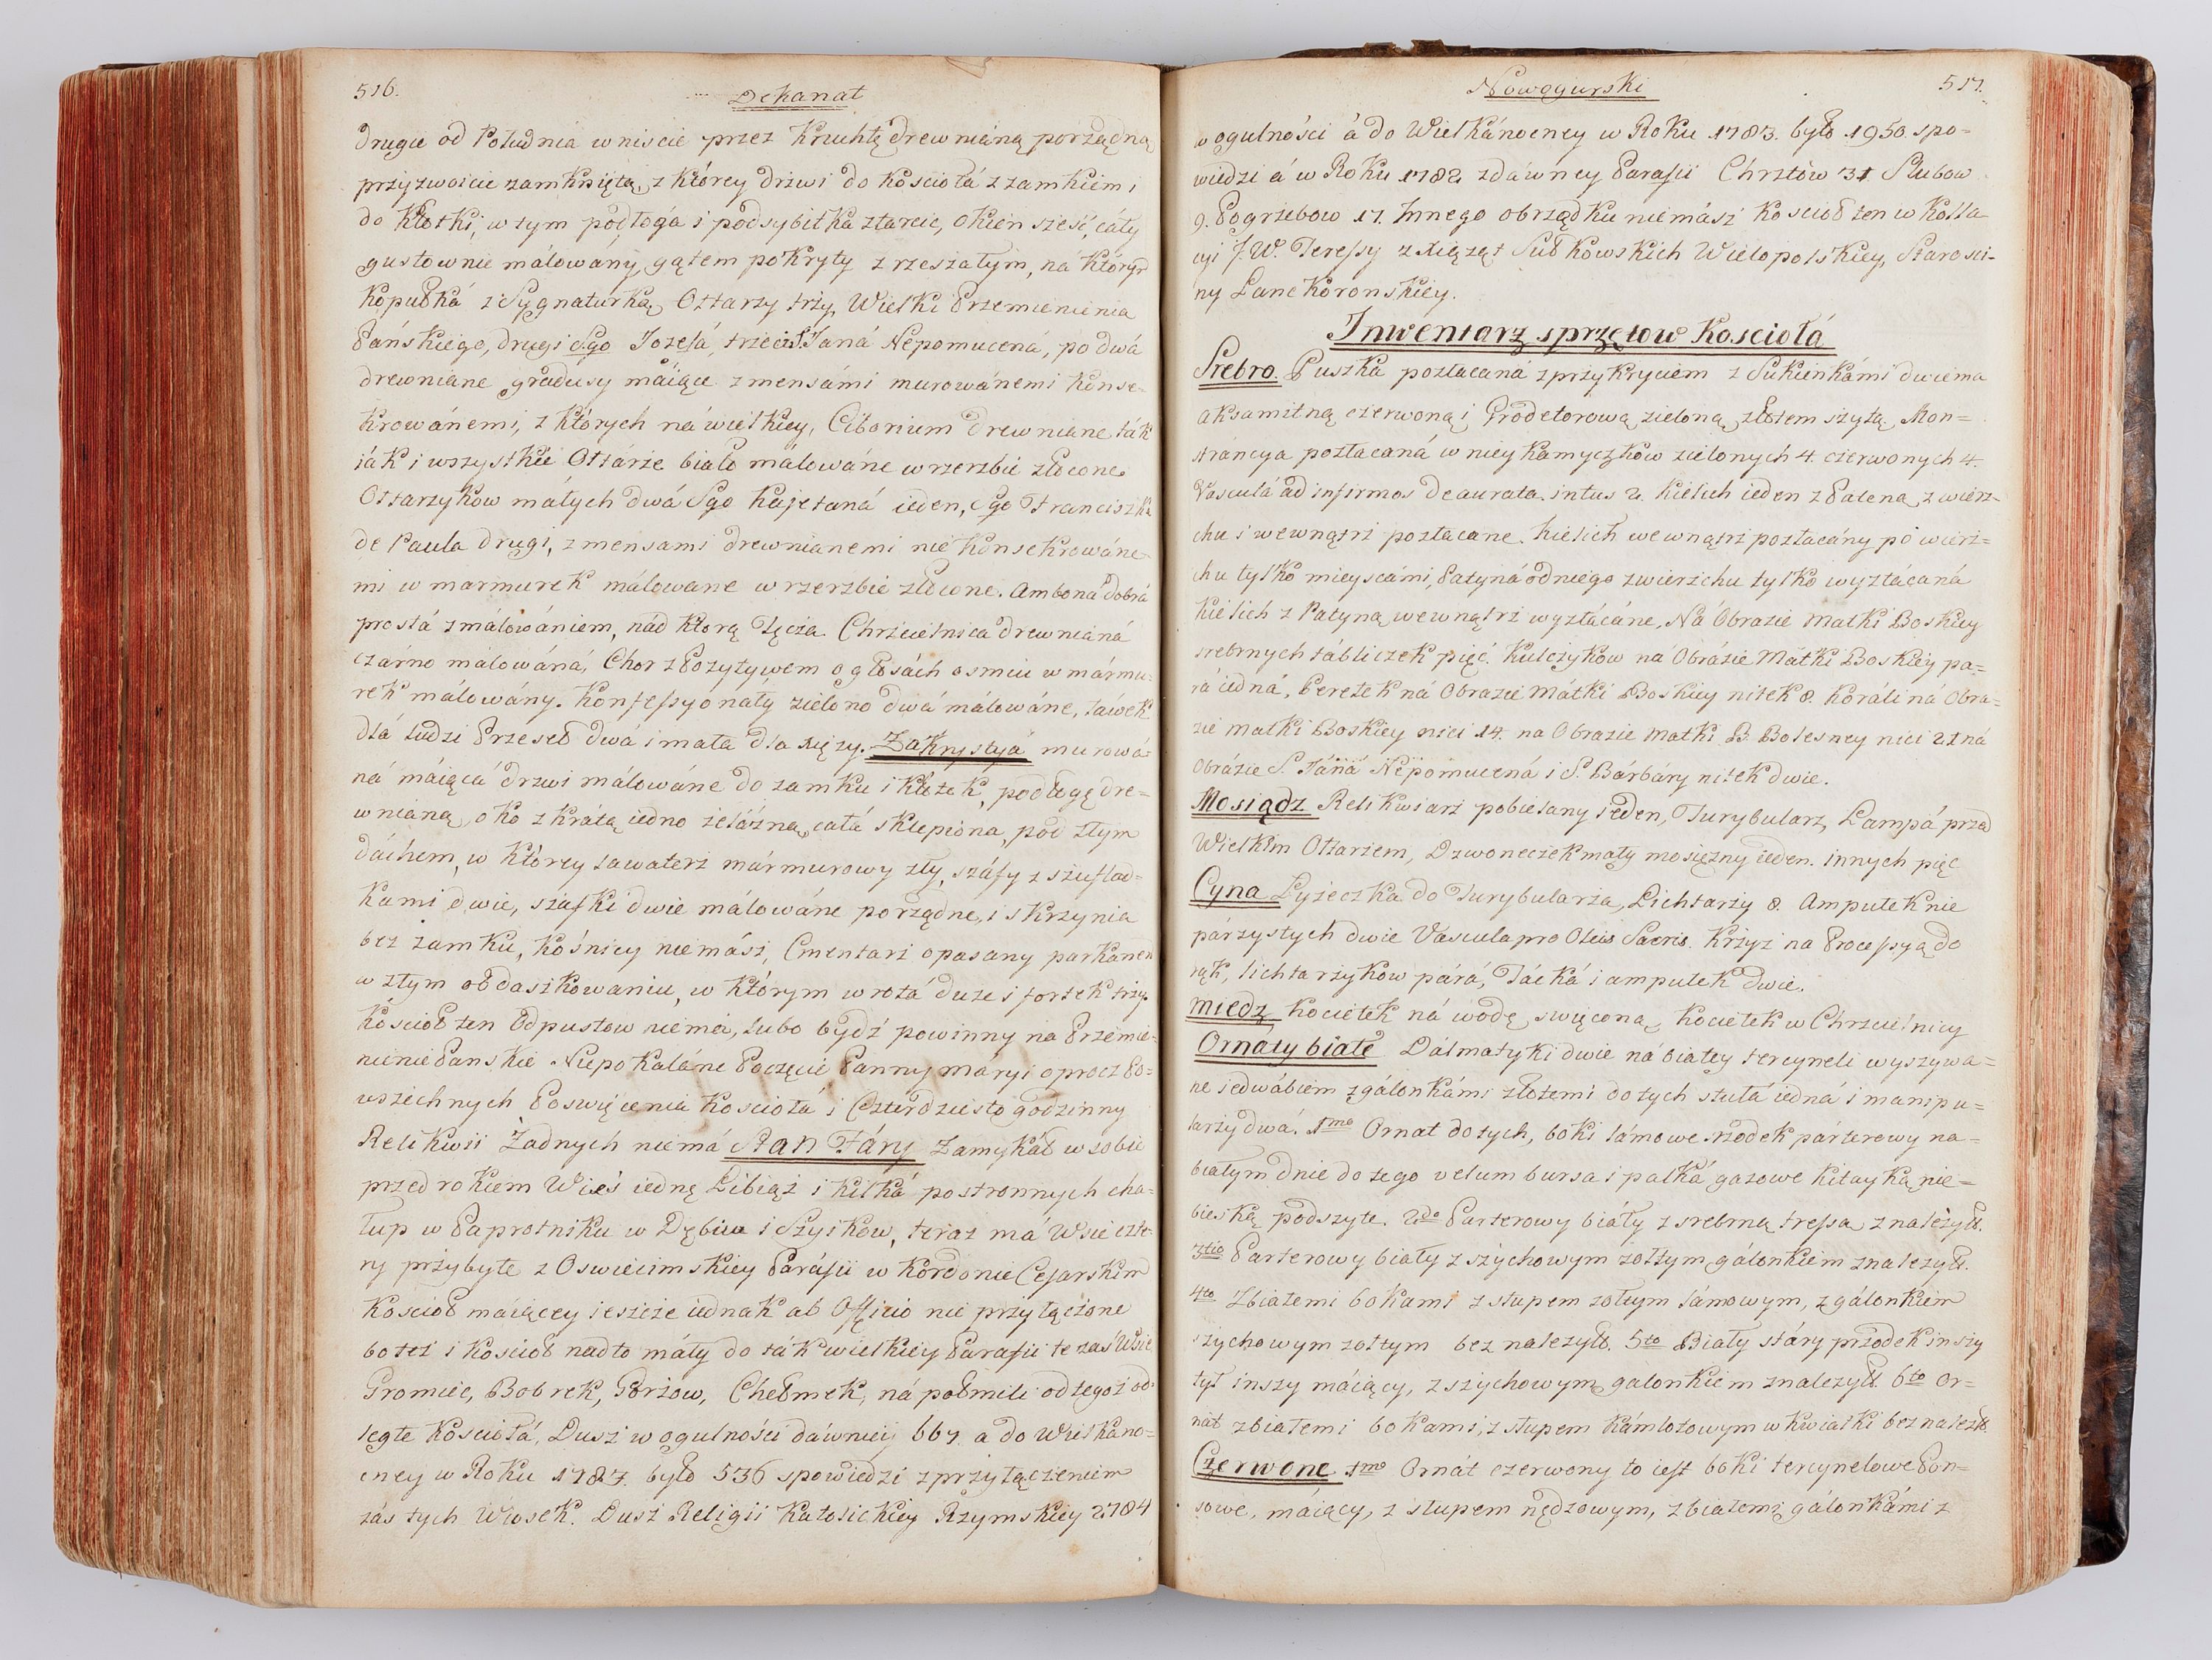 516.
Dekanat
drugie od Południa wniscie przez Kruchtę drewnianą porządną
przyzwoicie zamkniętą, z którey drzwi do Kosciołá z zamkiem i
do Kłotki, w tym podłoga i podsybitka ztarcic, okien szesć, cáły
gustownie málowány, gątem pokryty z rzeszatym, na którym
Kopułká z Sygnaturką, Ołtarzy trzy, Wielki Przemienienia
Páńskiego, drugi Sgo Jozefá, trzeci S. Janá Nepomucená, po dwá
drewniane gradusy máiące z mensámi murowánemi konse-
krowánemi, z których ná wielkiey, Ciborium drewniane ták
iák i wszystkie Ołtárze biało málowáne w rzezbie złocone.
Ołtarzykow máłych dwá Sgo Kajetaná ieden, Sgo Franciszka
de Paula drugi, z mensami drewnianemi nie konsekrowáne-
mi w marmurek málowane w rzezbie złocone. Ambona dobrá
prostá z málowániem, nád którą Tęcza. Chrzcielnica drewnianá
czárno málowáná, Chor z Pozytywem o głosách osmiu w mármu-
rek málowány. Konfessyonały zielono dwá málowáne, Ławek
dlá ludzi Przeseł dwá i mała dla xięzy. Zakrystyá murowá-
ná máiącá drzwi málowáne do zamku i kłotek, podłogę dre-
wnianą, oko z krátą iedno zelázną, całá sklepiona, pod złym
dáchem, w którey lawaterz mármurowy zły, száfy z szuflad-
kami dwie, szafki dwie málowáne porządne, i skrzynia
bez zamku, Kośnicy niemász, Cmentarz opasany parkanem
w złym obdaszkowaniu, w którym wrotá duze i fortek trzy.
Kościoł ten Odpustow niema, lubo bydź powinny na Przemie-
nienie Panskie Niepokaláne Poczęcie Panny Máryi oprocz Po-
wszechnych Poswięcenia Kosciołá i Czterdziesto godzinny
Relikwii Żadnych niemá Stan Fáry Zamykáł w sobie
przed rokiem Wieś iednę Libiąż i kilká postronnych cha-
łup w Paprotniku w Dębiu i Szyików, teraz má Wsie czte-
ry przybyłe z Oswiecimskiey Paráfii w Kordonie Cesarskim
Kościoł máiącey ieszcze iednak ab Officio nie przyłączone
bo też i Kościoł nadto máły do ták wielkiey Parafii te zaś Wsie
Gromiec, Bobrek, Gorzow, Chełmek, ná pół mili od tegoż od-
ległe Kościołá, Dusz w ogulności dáwniey 667. a do Wielkano-
cney w Roku 1783. było 536 spowiedzi z przyłączeniem
zás tych Wiosek. Dusz Religii Katolickiey Rzymskiey 2784
Nowogurski
517.
w ogulności á do Wielkánocney w Roku 1783. było 1950. spo-
wiedzi á w Roku 1782 zdáwney Parafii Chrztów 31 Slubow
9. Pogrzebow 17. Innego obrządku niemász Kościoł ten w Kolla-
cyi J.W. Teressy z xiążąt Sułkowskich Wielopolskiey, Starosci-
ny Lanckoronskiey.
Inwentarz sprzętow Kosciołá
Srebro. Puszka pozłacana z przykryciem z Sukienkámi dwiema
aksamitną czerwoną i Grodetorową zieloną, złotem szytą. Mon=
stráncya pozłacaná w niey kamyczków zielonych 4. czerwonych 4.
Vasculá ad infirmos deaurata intus 2. Kielich ieden z Pateną, z wierz-
chu i wewnątrz pozłacane. Kielich wewnątrz pozłacány po wierz=
chu tylko mieyscámi, Patyná od niego zwierzchu tylko wyzłácaná
Kielich z Patyną wewnątrz wyzłácáne, Ná Obrazie Matki Boskiey
srebrnych tábliczek pięć. Kulczykow ná Obrázie Mátki Boskiey pa=
rá iedná, Perełek ná Obrazie Mátki Boskiey nitek 8. Koráli ná Obra=
zie Matki Boskiey nici 14. na Obrazie Matki B. Bolesney nici 21 ná
Obrázie S. Jáná Nepomucená i S. Bárbáry nitek dwie.
Mosiądz Relikwiarz pobielany ieden, Turybularz, Lampá przed
Wielkim Ołtarzem, Dzwoneczek máły mosiężny ieden. innych pięc
Cyna Łyżeczka do Turybularza, Lichtarzy 8. Ampułek nie
párzystych dwie Vascula pro Oleis Sacris. Krzyż na Processyą do
rąk, lichtarzykow párá, Tácká i ampułek dwie.
Miedz Kociełek ná wodę swięconą, Kociełek w Chrzcielnicy
Ornaty białe Dálmatyki dwie ná białey tercyneli wyszywa=
ne iedwábiem z gálonkámi złotemi do tych stułá iedná i manipu=
larzy dwá. 1mo Ornat do tych, boki lámowe szrodek párterowy na=
białym dnie do tego velum bursa i palká gazowe kitayką nie=
bieską podszyte. 2do Parterowy biáły z srebrną tressą z należyt.
3tio Parterowy biały z szychowym żołtym gálonkiem znależyt.
4to Zbiałemi bokami z słupem żołtym lámowym, z gálonkiem
szychowym żołtym bez należyt. 5to Biały stáry przodek inszy
tył inszy máiący, z szychowym galonkiem z należyt. 6to Or=
nát z białemi bokami, z słupem kámlotowym w kwiatki bez należt.
Czerwone 1mo Ornát czerwony to iest boki tercynelowe Pon=
sowe, máiący, z słupem nędzowym, z białemi gálonkámi z